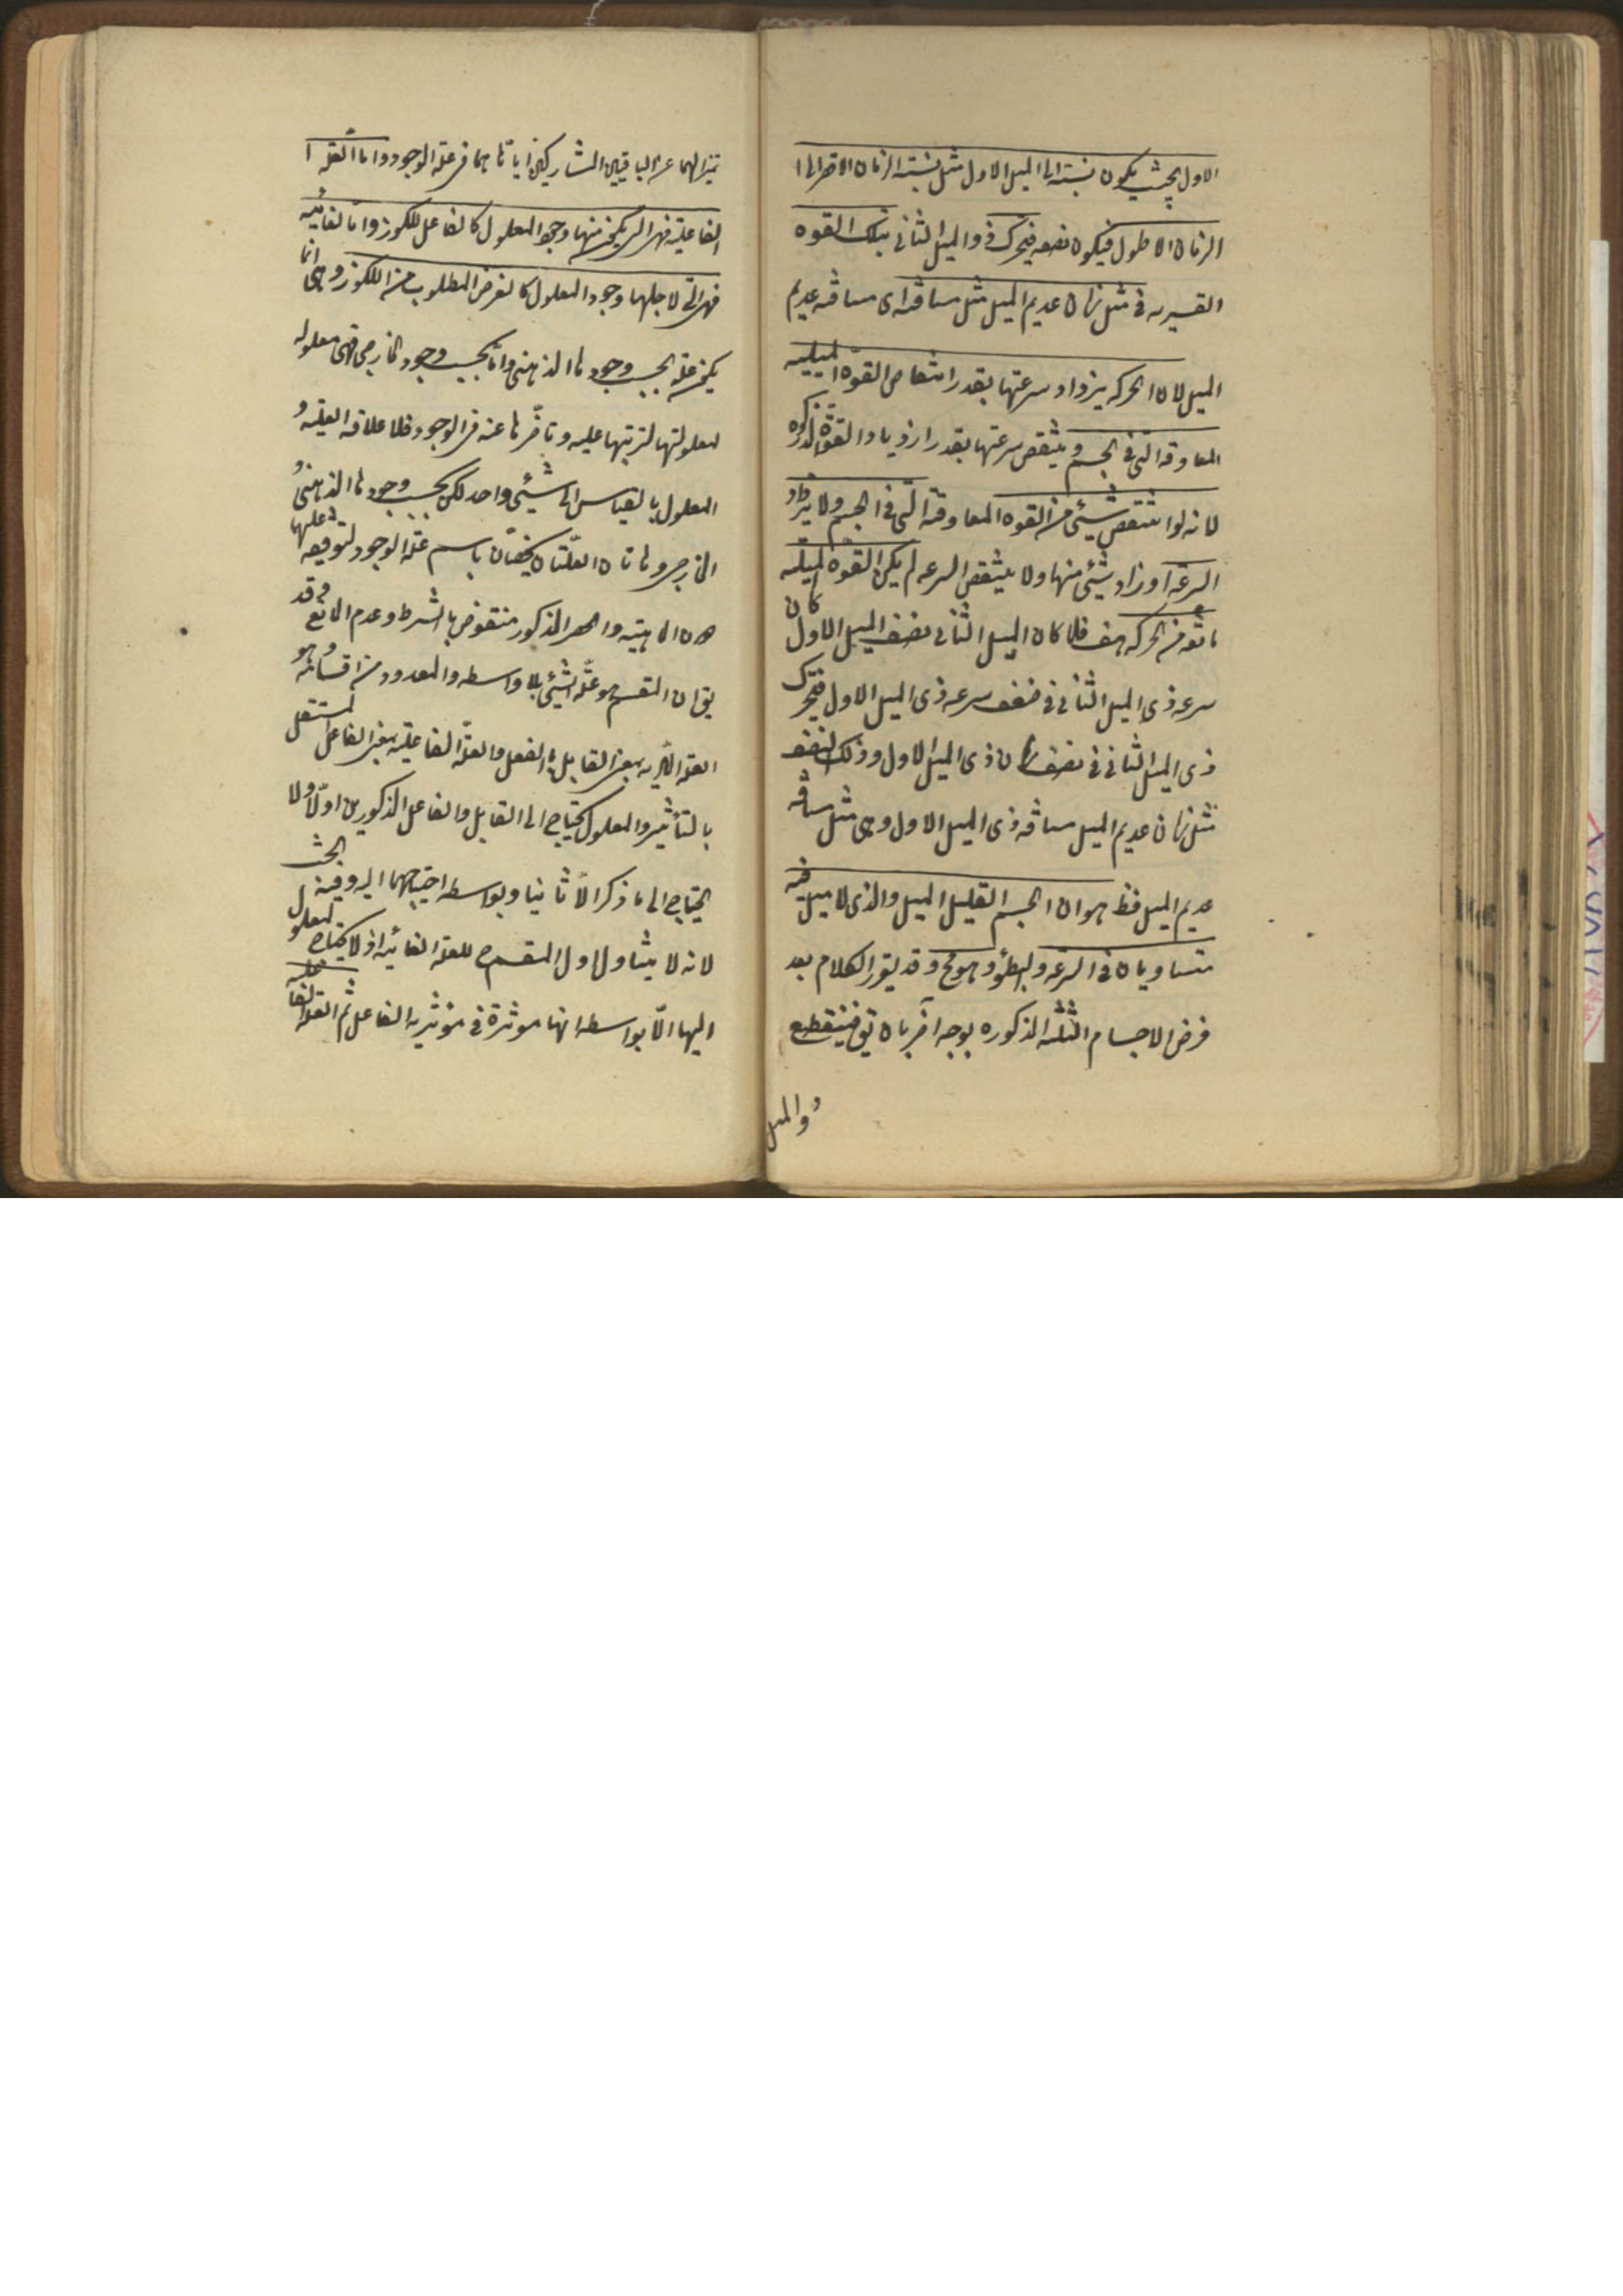 الاول بحيث يكون نسبته الى الميل الاول مثل نسبته الزمان الاقصر الى ا
الزمان الاطول فيكون نصفه فيتحرك ذو الميل الثانى بتلك القوه
القسريه فى مثل زمان عديم الميل مثل مسافته اى مسافه عديم
الميل لان الحركه يزداد سرعتها بقدر انتقاص القوة الميليه
المعاوقه التى فى الجسم و ينتقص سرعتها بقدر ازدياد القوة المذكوره
لانه لو انتقص شيئى من القوه المعاوقة التى فى الجسم ولا يزداد
السرعه او زاد شيئى منها ولا ينتقص السرعه لم يكن القوة الميليه
مانعه من الحركه هف فلما كان الميل الثانى نصف الميل الاول كان
سرعه ذى الميل الثانى فى ضعف سرعه ذى الميل الاول فيتحرك
ذى الميل الثانى فى نصف زمان ذى الميل الاول وذلك النصف
مثل زمان عديم الميل مسافه ذى الميل الاول وهى مثل مسافه
عديم الميل فظ هو ان الجسم القليل الميل والذى لا ميل فيه
متساويان فى السرعه والبطؤ و هو مح وقد يقرر الكلام بعد
فرض الاجسام الثلثه المذكوره بوجه آخر بان يق فينقطع
ذو الميل
تميزا لهما عن الباقيين المشاركين اياتاهما فى علة الوجود واما العلة ا
الفاعلية فهى التى يكون منها وجود المعلول كالفاعل للكوز واما الغائيه
فهى التى لاجلها وجود المعلول كالغرض المطلوب من الكوز وهى انما
يكون علة بحسب وجودها الذهنى واما بحسب وجود الخارجى فهى معلوله
لمعلولتها لترتبها عليه وتاخرها عنه فى الوجود فلها علاقه العليه و
المعلول بالقياس الى شيئى واحد لكن بحسب وجودها الذهنى و
الخارجى وهاتان العلتان يخصان باسم علة الوجود لتوقفه عليهما
دون الماهيته والحصر المذكور منتقوض بالشرط وعدم المانع وقد
يق ان المقسم هو علة الشيئى بلا واسطه والمعدود من اقسامه هو
العله الماديه بمعنى القابل بالفعل والعلة الفاعلية بمعنى الفاعل المستقل
بالتأثير والمعلول يحتاج الى القابل والفاعل المذكورين اولا ولا
يحتاج الى ما ذكر الا ثانيا وبواسطه احتياجهما اليه وفيه البحث
لانه لا يتناول اول المقسم للعله الغائيه اذ لا يحتاج المعلول
اليها الا بواسطه انها موثرة فى مؤثريه الفاعل ثم العله الفاعليه